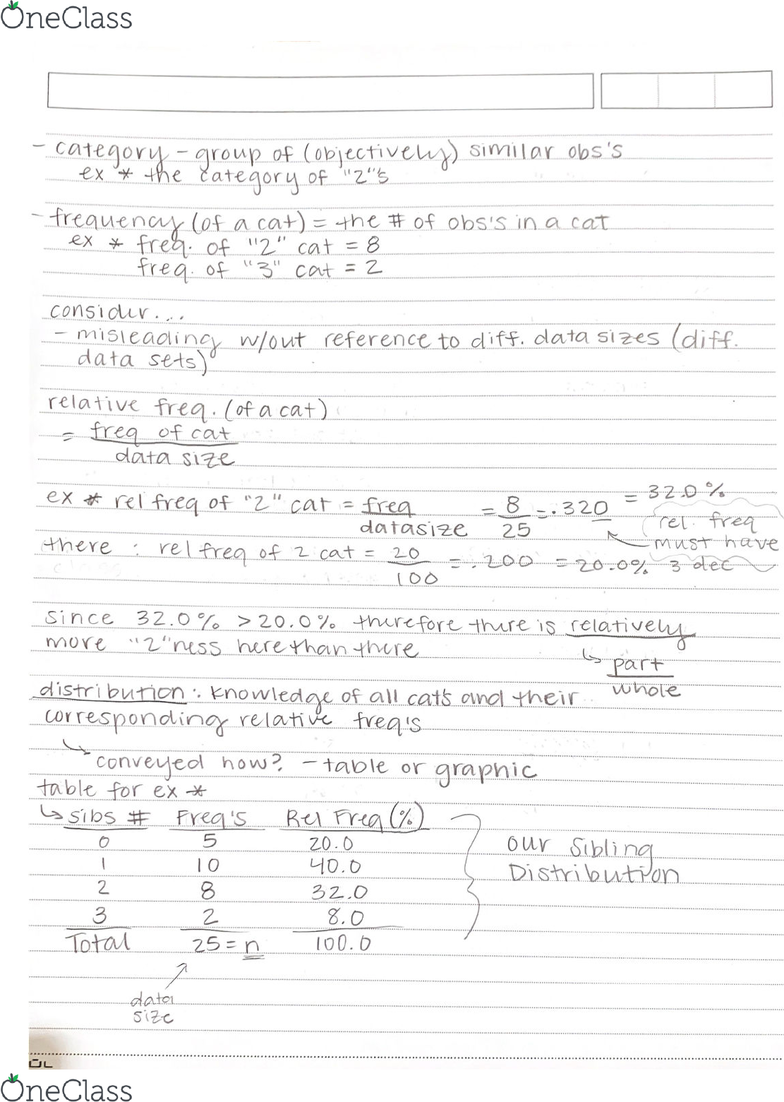 OneClass
- category - group of (objectively) similar obs's
ex * the category of "2"s
- frequency (of a cat) = the # of obs's in a cat
ex * freq. of "2" cat = 8
freq. of "3" cat = 2
consider...
- misleading w/out reference to diff. data sizes (diff.
data sets)
relative freq. (of a cat)
= freq of cat
data size
ex * rel freq of "2" cat = freq = 8 = .320 = 32.0%
datasize 25
rel. freq
must have
3 dec
there : rel freq of 2 cat = 20 = .200 = 20.0%
100
since 32.0% > 20.0% therefore there is relatively
more "2"ness here than there
↳ part
whole
distribution : knowledge of all cats and their
corresponding relative freq's
↳ conveyed how? - table or graphic
table for ex *
↳ sibs # Freq's Rel Freq (%)
0 5 20.0
1 10 40.0
2 8 32.0
3 2 8.0
Total 25 = n 100.0
our Sibling
Distribution
data
size
OneClass